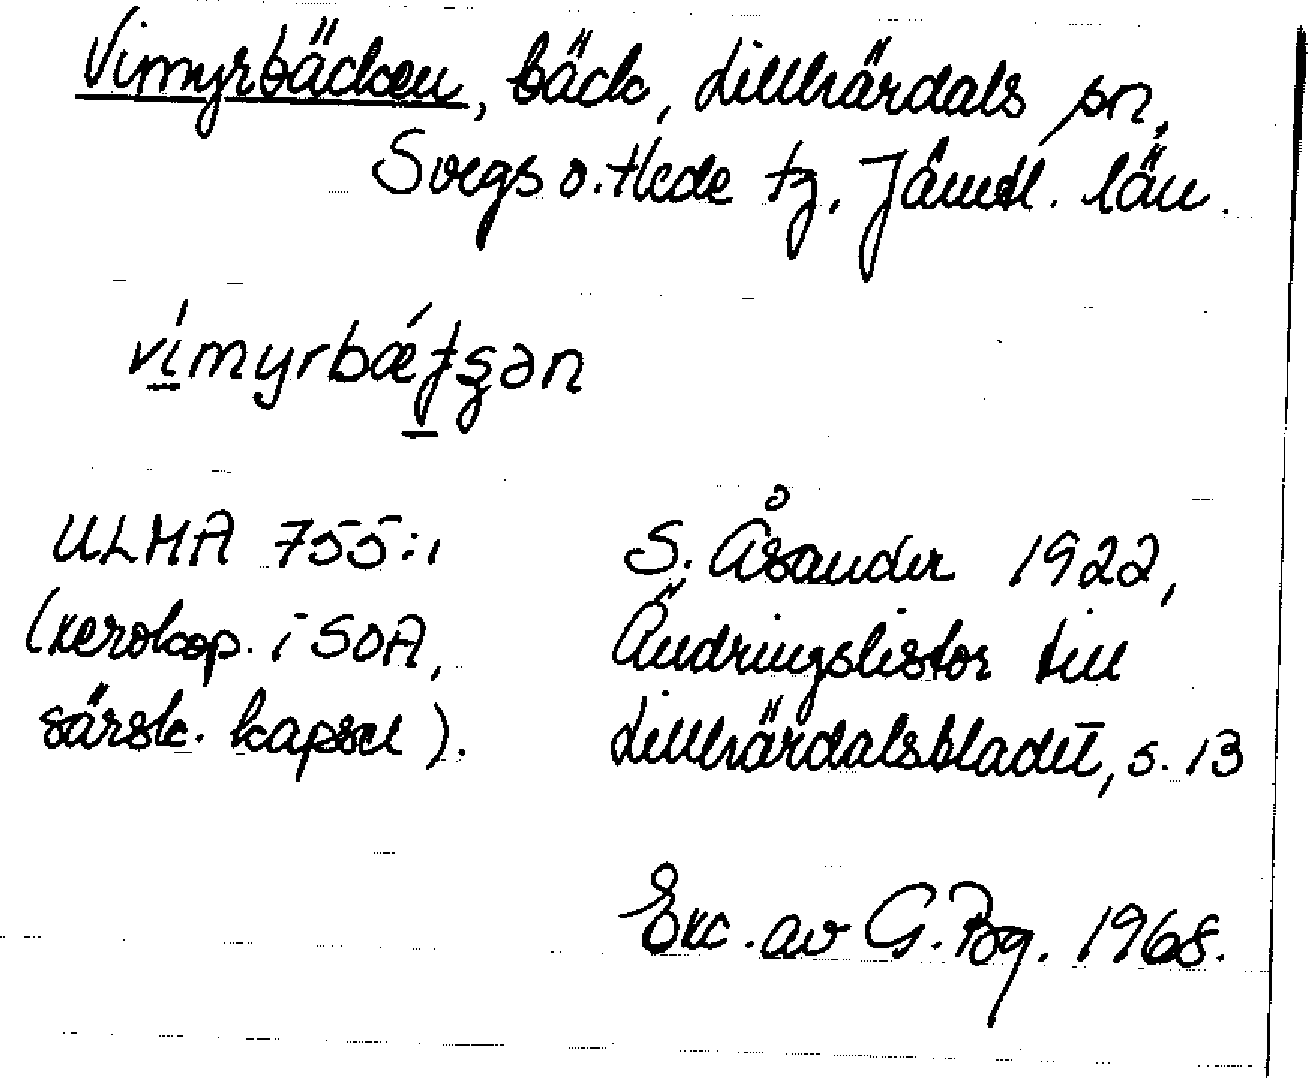 Vimyrbäcken, bäck, Lillhärdals sn,
Svegs o. Hede tg, Jämtl. län.
vímyrbǽʈʂən
ULMA 755:1
(xerokop. i SOA,
särsk. kapsel).
S. Åsander 1922,
Ändringslistor till
Lillhärdalsbladet, s. 13
Exc. av G. Bg. 1968.